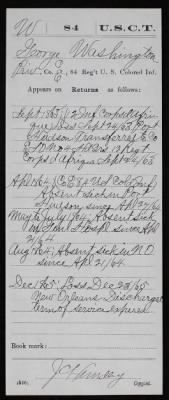 W 84 U.S.C.T.
George Washington
Pvt., Co. E, 84 Reg't U. S. Colored Inf.
Appears on Returns as follows:
Sept 1863
Sept 24/63 Port
Hudson Transferred to Co
Corps d'Afrique Sept 24/63
Apl 1864, Co E 84 U.S. Col Inf
Absent sick in Port
Hudson since Apl 21/64
May & July 1864 Absent sick
in Genl Hospl since Apl
21/64
Aug 1864, Absent sick in N.O.
since Apl 21/64.
Dec 1865, Loss Dec 23/65
New Orleans Discharged
term of service expired
Book mark:
(546) Copyist.